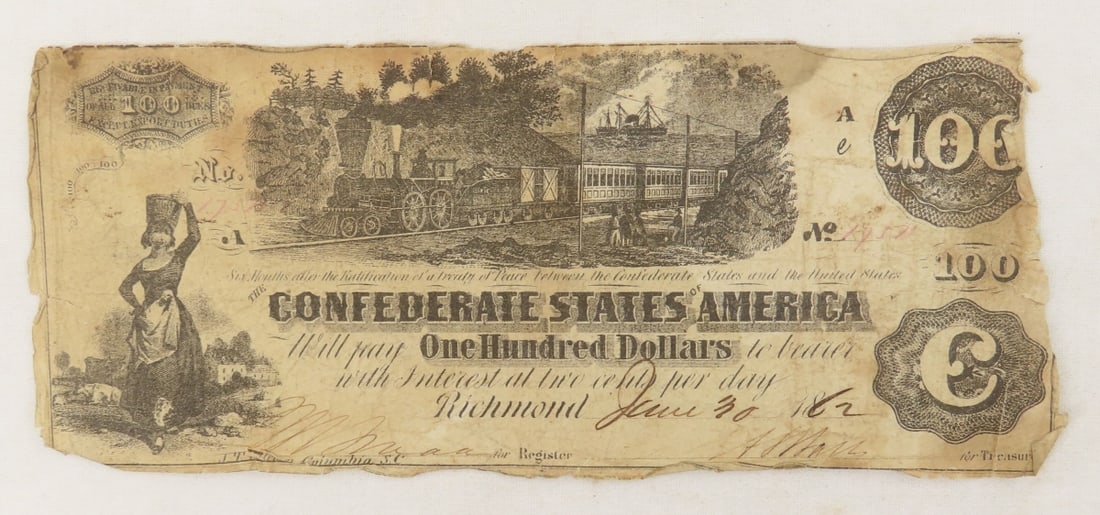 RECEIVABLE IN PAYMENT
OF ALL 100 DUES
EXCEPT EXPORT DUTIES
100 100 100
No.
A
A
e
100
No
100
Six Months after the Ratification of a treaty of Peace between the Confederate States and the United States
THE CONFEDERATE STATES OF AMERICA
Will pay One Hundred Dollars to bearer
with Interest at two cents per day
Richmond June 30 1862
C
Columbia, S.C.
for Register
for Treasur